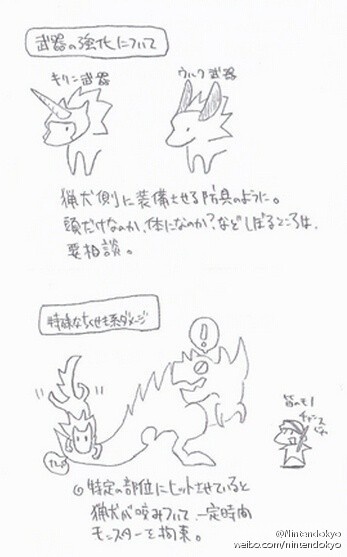 武器の強化について
キリン武器
ウルク武器
猟犬側に装備させる防具のように。
頭だけなのか、体になのか?などしぼるところは、
要相談。
特殊なちくせき系ダメージ
!
皆のモノ
チャンス
じゃ
◎特定の部位にヒットさせていると
猟犬が咬みついて一定時間
モンスターを拘束。
@Nintendokyo
weibo.com/nintendokyo